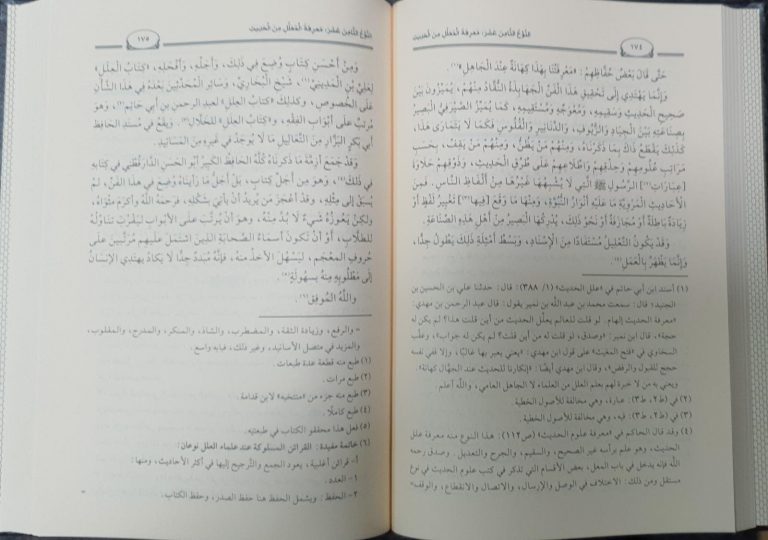 النَّوْعُ الثَّامِنَ عَشَرَ: مَعْرِفَةُ المُعَلَّلِ مِن الحَدِيثِ
١٧٤
حَتَّى قَالَ بَعْضُ حُفَّاظِهِمْ: «مَعْرِفَتُنَا بِهَذَا كِهَانَةٌ عِنْدَ الجَاهِلِ»(١).
وَإِنَّمَا يَهْتَدِي إِلَى تَحْقِيقِ هَذَا الْفَنِّ الجَهَابِذَةُ النُّقَّادُ مِنْهُمْ، يُمَيِّزُونَ بَيْنَ
صَحِيحِ الحَدِيثِ وَسَقِيمِهِ، وَمُعْوَجِّهِ وَمُسْتَقِيمِهِ، كَمَا يُمَيِّزُ الصَّيْرَفِيُّ البَصِيرُ
بِصِنَاعَتِهِ بَيْنَ الجِيَادِ وَالزُّيُوفِ، وَالدَّنَانِيرِ وَالْفُلُوسِ فَكَمَا لَا يَتَمَارَى هَذَا،
كَذَلِكَ يَقْطَعُ ذَاكَ بِمَا ذَكَرْنَاهُ، وَمِنْهُمْ مَنْ يَظُنُّ، وَمِنْهُمْ مَنْ يَقِفُ، بِحَسَبِ
مَرَاتِبِ عُلُومِهِمْ وَحِذْقِهِمْ وَاطِّلَاعِهِمْ عَلَى طُرُقِ الحَدِيثِ، وَذَوْقِهِمْ حَلَاوَةَ
[عِبَارَاتِ](٢) الرَّسُولِ ﷺ الَّتِي لَا يُشْبِهُهَا غَيْرُهَا مِنْ أَلْفَاظِ النَّاسِ. فَمِنَ
الْأَحَادِيثِ المَرْوِيَّةِ مَا عَلَيْهِ أَنْوَارُ النُّبُوَّةِ، وَمِنْهَا مَا وَقَعَ [فِيهَا](٣) تَغْيِيرُ لَفْظٍ أَوْ
زِيَادَةٌ بَاطِلَةٌ أَوْ مُجَازَفَةٌ أَوْ نَحْوُ ذَلِكَ، يُدْرِكُهَا الْبَصِيرُ مِنْ أَهْلِ هَذِهِ الصِّنَاعَةِ.
وَقَدْ يَكُونُ التَّعْلِيلُ مُسْتَفَادًا مِنَ الْإِسْنَادِ، وَبَسْطُ أَمْثِلَةِ ذَلِكَ يَطُولُ جِدًّا،
وَإِنَّمَا يَظْهَرُ بِالْعَمَلِ(٤).
(١) أسند ابن أبي حاتم في «علل الحديث» (١/ ٣٨٨): قال: حدثنا علي بن الحسين بن
الجنيد؛ قال: سمعت محمد بن عبد الله بن نمير يقول: قال عبد الرحمن بن مهدي:
«معرفة الحديث إلهام. لو قلت للعالم يعلّل الحديث من أين قلت هذا؟ لم يكن له
حجة»، قال ابن نمير: «وصدق، لو قلت له من أين قلت؟ لم يكن له جواب»، وعلَّب
السخاوي في «فتح المغيث» على قول ابن مهدي: «يعني يعبر بها غالبًا، وإلا ففي نفسه
حجج للقبول والرفض»، وقال ابن مهدي أيضًا: «إنكارنا للحديث عند الجهّال كهانة».
ويعني به من لا خبرة لهم بعلم العلل من العلماء لا الجاهل العامي، والله أعلم.
(٢) في (ط٢، ط٣): عبارة، وهي مخالفة للأصول الخطية.
(٣) في (ط٢، ط٣): فيه، وهي مخالفة للأصول الخطية.
(٤) وقد قال الحاكم في «معرفة علوم الحديث» (ص١١٢): هذا النوع منه معرفة علل
الحديث، وهو علم برأسه غير الصحيح، والسقيم، والجرح والتعديل. وصدق رحمه
الله فإنه يدخل في باب العلل، بعض الأقسام التي تذكر في كتب علوم الحديث في نوع
مستقل ومن ذلك: الاختلاف في الوصل والإرسال، والاتصال والانقطاع، والوقف=
النَّوْعُ الثَّامِنَ عَشَرَ: مَعْرِفَةُ المُعَلَّلِ مِن الحَدِيثِ
١٧٥
وَمِنْ أَحْسَنِ كِتَابٍ وُضِعَ فِي ذَلِكَ، وَأَجَلِّهِ، وَأَفْحَلِهِ، «كِتَابُ العِلَلِ»
لِعَلِيِّ بْنِ الْمَدِينِيِّ(١)، شَيْخِ الْبُخَارِيِّ، وَسَائِرِ الْمُحَدِّثِينَ بَعْدَهُ فِي هَذَا الشَّأْنِ
عَلَى الخُصُوصِ، وكذلك «كتابُ العللِ» لعبدِ الرحمنِ بنِ أبي حاتمٍ(٢)، وَهُوَ
مُرَتَّبٌ عَلَى أَبْوَابِ الْفِقْهِ، و«كتابُ العِلَلِ» لِلخَلَّالِ(٣). وَيَقَعُ في مُسْنَدِ الحافِظِ
أبي بَكْرٍ البزَّارِ مِنَ التَّعَالِيلِ مَا لَا يُوجَدُ فِي غَيْرِهِ مِنَ الْمَسَانِيدِ.
وَقَدْ جَمَعَ أَزِمَّةَ مَا ذَكَرنَاهُ كُلَّهُ الحافِظُ الكبيرُ أبُو الحَسَنِ الدَّارَقُطْنِي في كتابِهِ
في ذَلكَ(٤)، وهو مِن أَجَلِّ كِتابٍ، بَلْ أَجَلُّ مَا رَأَيْنَاهُ وُضِعَ فِي هَذَا الفَنِّ، لَمْ
يُسْبَقْ إِلَى مِثْلِهِ، وَقَدْ أَعْجَزَ مَنْ يُرِيدُ أَنْ يَأْتِيَ بِشَكْلِهِ، فَرَحِمَهُ اللَّهُ وَأَكْرَمَ مَثْوَاهُ،
ولكنْ يَعُوزُهُ شَيْءٌ لَا بُدَّ مِنْهُ، وهو أنْ يُرتَّبَ على الأبوابِ لِيَقْرُبَ تَنَاوُلُهُ
للطُّلَابِ، أَوْ أَنْ تكونَ أسماءُ الصَّحَابَةِ الذِينَ اشْتَمَلَ عَلَيهِم مُرَتَّبِينَ على
حُروفِ المُعجَمِ، لِيَسْهُلَ الأَخْذُ منه، فَإِنَّهُ مُبَدَّدٌ جِدًّا لَا يَكَادُ يهتدِي الإنسانُ
إلى مَطْلُوبِهِ مِنهُ بِسهُولةٍ(٥).
وَاللَّهُ الْمُوَفِّقُ(٦).
= والرفع، وزيادة الثقة، والمضطرب، والشاذ، والمنكر، والمدرج، والمقلوب،
والمزيد في متصل الأسانيد، وغير ذلك، فبابه واسع.
(١) طبع منه قطعة عدة طبعات.
(٢) طبع مرات.
(٣) طبع منه جزء من «منتخبه» لابن قدامة.
(٤) طبع كاملًا.
(٥) فعل هذا محققو الكتاب في طبعتيه.
(٦) خاتمة مفيدة: القرائن المسلوكة عند علماء العلل نوعان:
أ- قرائن أغلبية، يعود الجمع والترجيح إليها في أكثر الأحاديث، ومنها:
١- العدد.
٢- الحفظ. ويشمل الحفظ هنا حفظ الصدر، وحفظ الكتاب. =